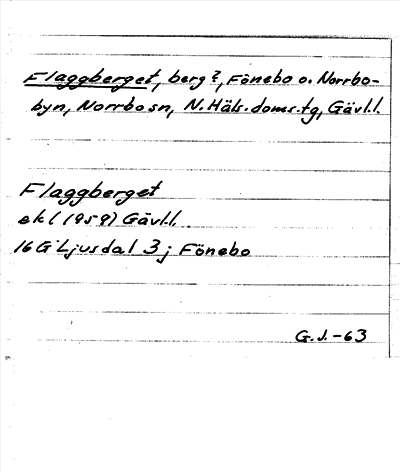 Flaggberget, berg?, Fönebo o. Norrbo-
byn, Norrbo sn, N. Häls. doms.tg, Gävl.l.
Flaggberget
ek l (1959) Gävl.l.
16G Ljusdal 3j Fönebo
G.J.-63